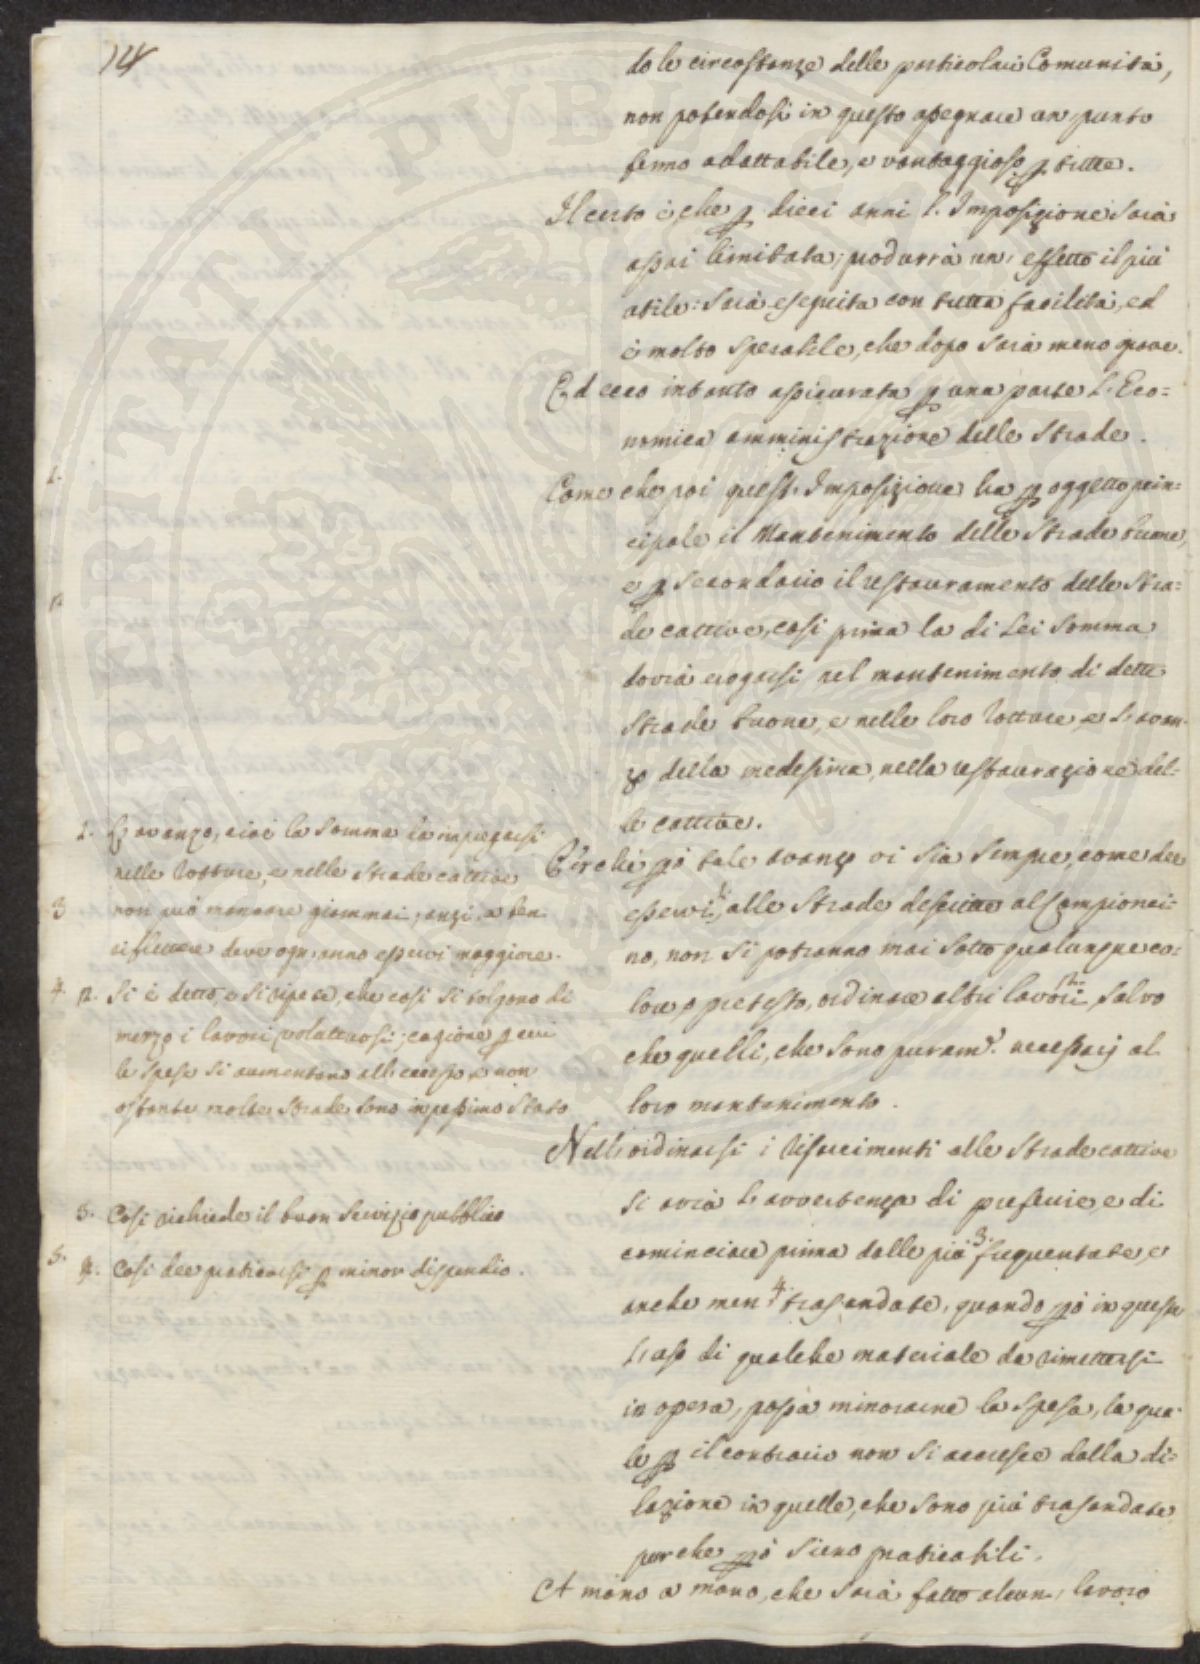 14
do le circostanze delle particolari Comunità,
non potendosi in questo assegnare un punto
fermo adattabile, e vantaggioso p tutte.
Il certo è che p dieci anni l'Imposizione sarà
assai limitata; produrrà un' effetto il più
utile: Sarà eseguita con tutta facilità, ed
è molto sperabile, che dopo sarà meno grave.
Ed ecco intanto assicurata p una parte l'Eco=
nomica amministrazione delle Strade.
Come che poi quest'Imposizione ha p oggetto prin=
cipale il Mantenimento delle Strade buone,
e p secondario il restauramento delle Stra=
de cattive, così prima la di Lei Somma
dovrà erogarsi nel mantenimento di dette
Strade buone, e nelle loro rotture, e l'avan=
zo della medesima, nella restaurazione del=
le cattive.
Perchè pò tale avanzo vi sia sempre, come dee
esservi, alle Strade descritte al Campionci=
no, non si potranno mai sotto qualunque co=
lore, o pretesto, ordinare altri lavori, salvo
che quelli, che sono puramte. necessarj al
loro mantenimento.
Nell'ordinarsi i risarcimenti alle Strade cattive
si avrà l'avvertenza di preferire, e di
cominciare prima dalle più 3. frequentate, e
anche men 4. trasandate, quando pò in questo
caso di qualche materiale da rimettersi
in opera, possa minorarne la spesa, la qua=
le p il contrario non si accresce dalla di=
lazione in quelle, che sono più trasandate,
purche pò sieno praticabili.
A mano a mano, che sarà fatto alcun' lavoro
1. L'avanzo, cioè la Somma da impiegarsi
nelle rotture, e nelle Strade cattive
non può mancare giammai; anzi, a ben
riflettere deve ogn'anno esservi maggiore.
2. Si è detto, e si ripete, che così si tolgono di
mezzo i lavori voluttuosi; cagione p cui
le spese si aumentano all'eccesso, e non
ostante molte Strade sono in pessimo Stato
3. Così richiede il buon Servizio pubblico
4. Così dee praticarsi p minor dispendio.